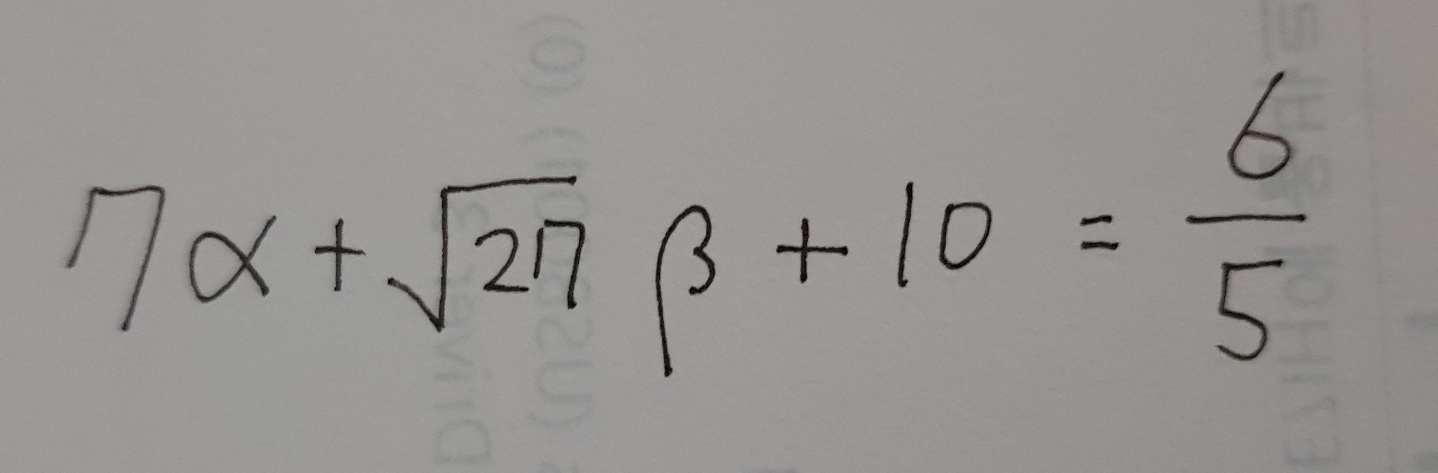 7α + √27 β + 10 = 6/5